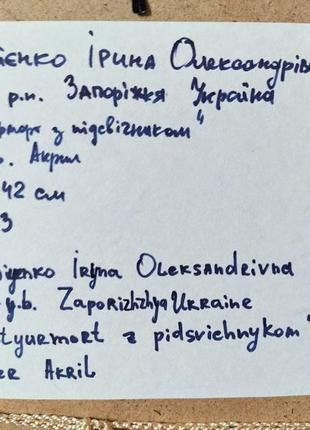 ієнко Ірина Олександрів
р.н. Запоріжжя Україна
юрморт з підсвічником"
. Акрил
42 см
3
iyenko Iryna Oleksandrivna
y.b. Zaporizhzhya Ukraine
tyurmort z pidsvichnykom"
er Akril